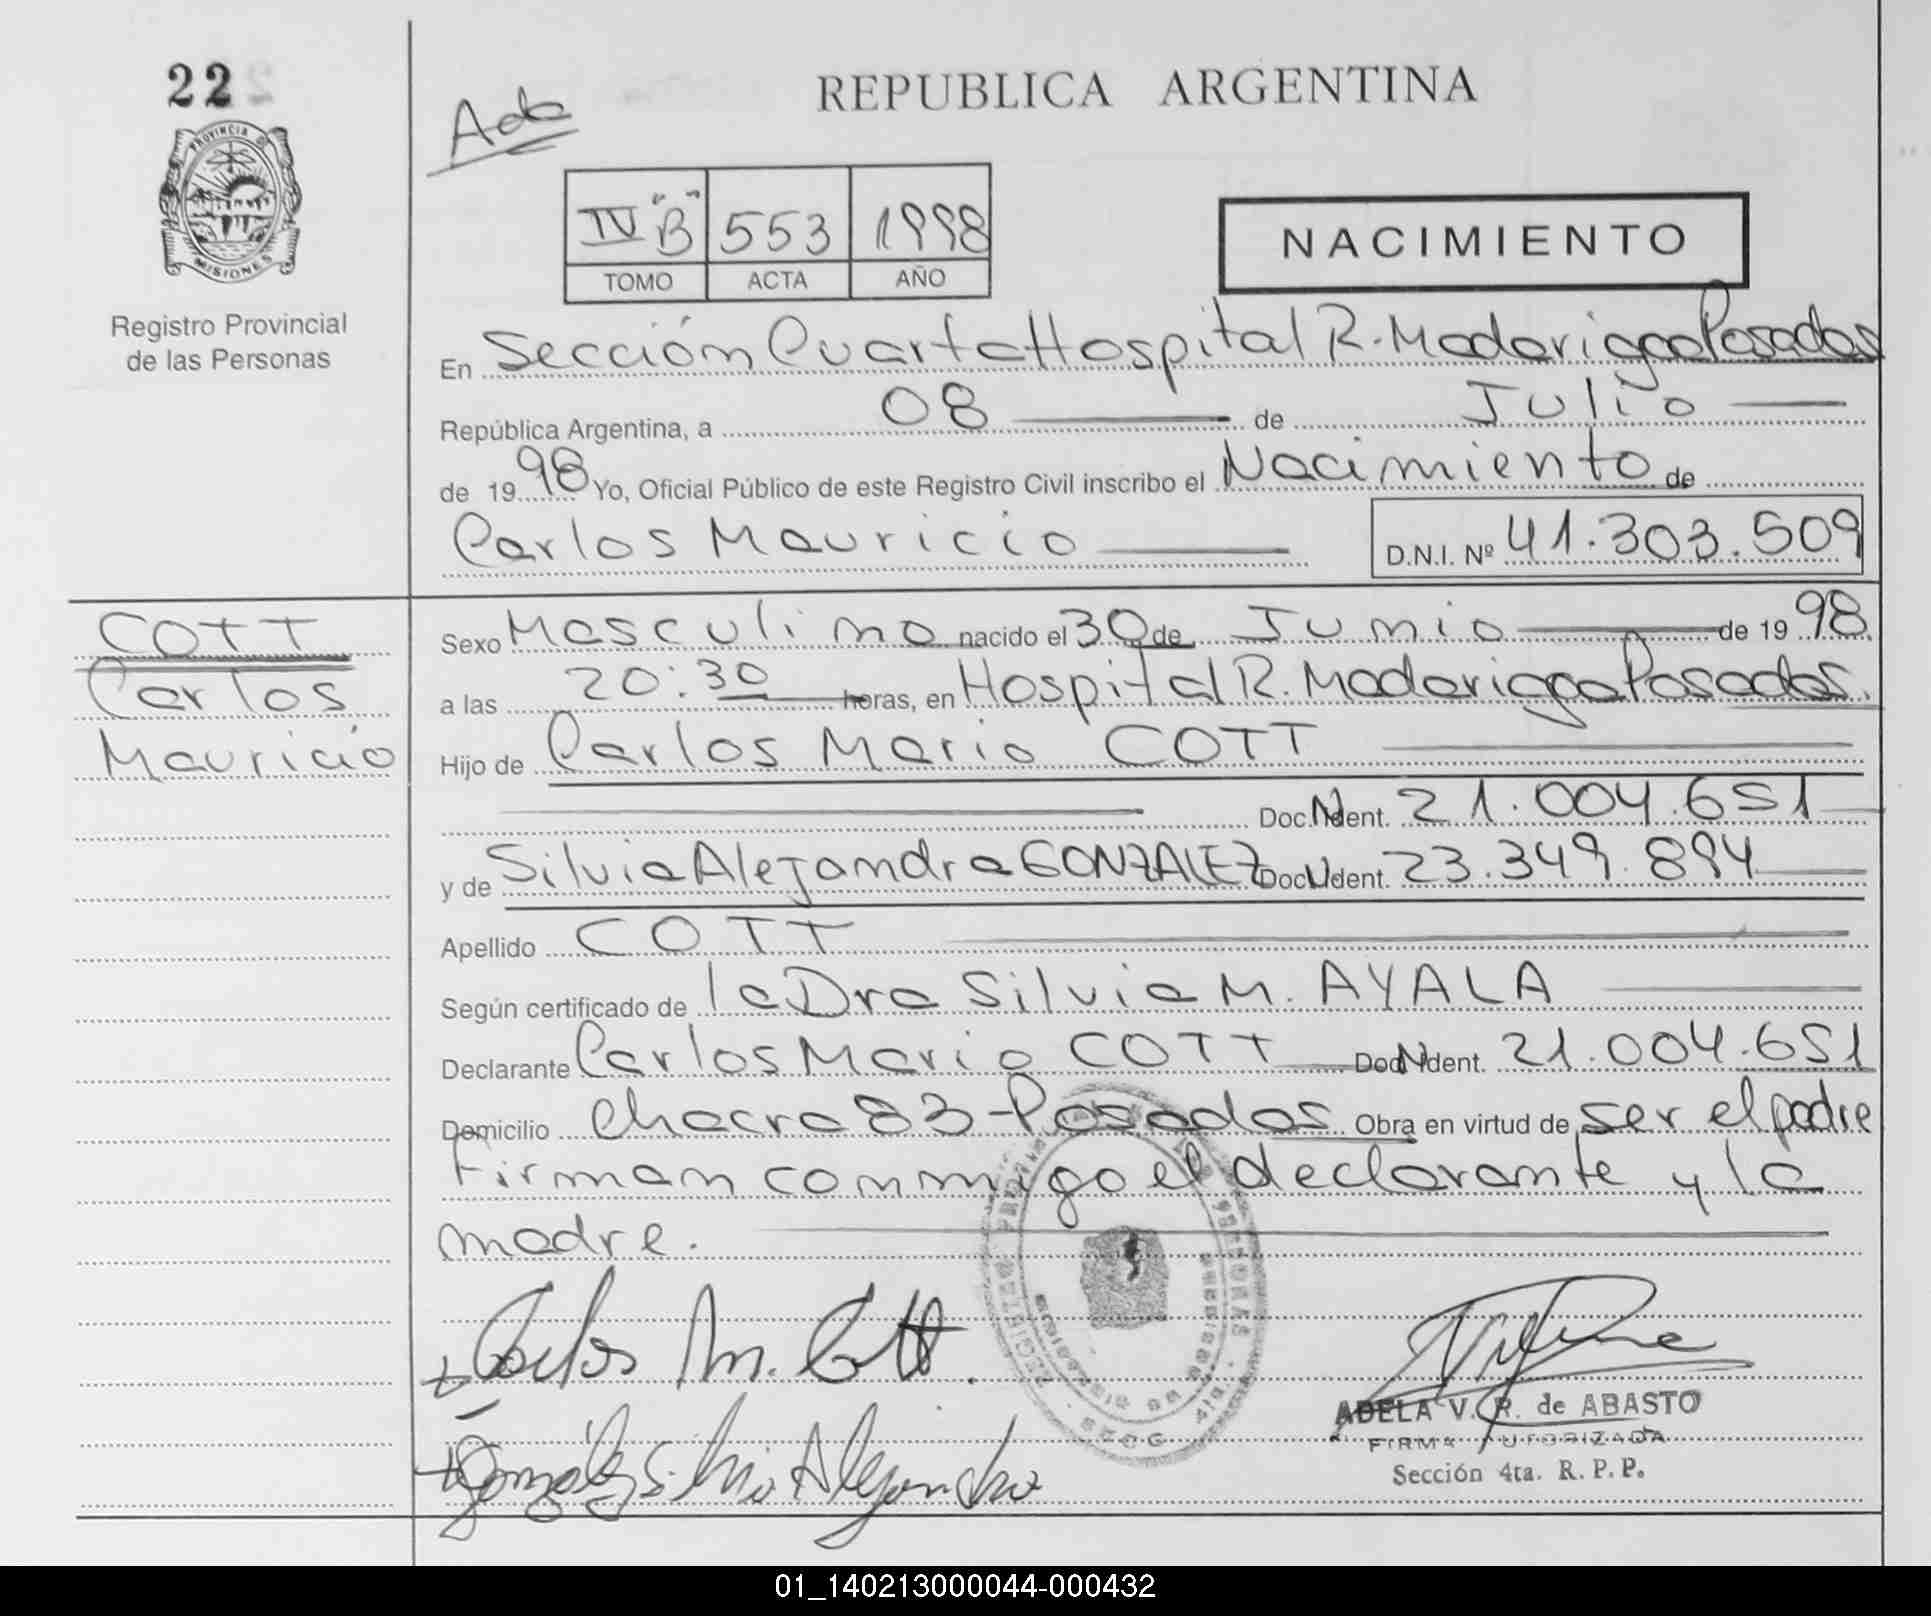 22
PROVINCIA DE
MISIONES
Registro Provincial
de las Personas
Acta
REPUBLICA ARGENTINA
IV "B" 553 1998
TOMO ACTA AÑO
NACIMIENTO
En Sección Cuarta Hospital R. Madariaga Posadas
República Argentina, a 08 de Julio
de 1998 Yo, Oficial Público de este Registro Civil inscribo el Nacimiento de
Carlos Mauricio D.N.I. Nº 41.303.509
COTT
Carlos
Mauricio
Sexo Masculino nacido el 30 de Junio de 1998
a las 20:30 horas, en Hospital R. Madariaga Posadas.
Hijo de Carlos Mario COTT
Doc. Ident. 21.004.651
y de Silvia Alejandra GONZALEZ Doc. Ident. 23.349.894
Apellido COTT
Según certificado de la Dra Silvia M. AYALA
Declarante Carlos Mario COTT Doc. Ident. 21.004.651
Domicilio Chacra 83 - Posadas Obra en virtud de ser el padre
Firman conmigo el declarante y la
madre.
Carlos M. Cott.
Gonzalez Silvia Alejandra
ADELA V. R. de ABASTO
FIRMA AUTORIZADA
Sección 4ta. R. P. P.
01_140213000044-000432